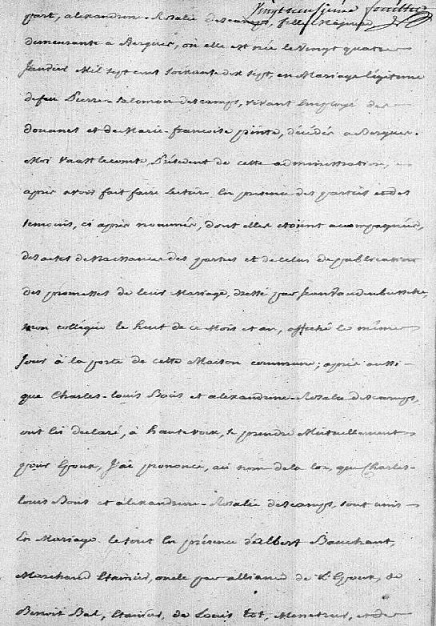 vingt neuvième feuillet
part, alexandrine-Rosalie Descamps, fille majeure
demeurante a Bergues, où elle est née le vingt quatre
Janvier Mil sept cent soixante dix sept, en Mariage légitime
de feu Pierre Salomon descamps, vivant Employé des
douanes et de Marie-francoise décédés a Bergues.
Moi Vaast Lecomte, Président de cette administration,
après avoir fait faire lecture En présence des parties et des
temoins, ci après nommés, dont elles etoient acompagnées,
des actes de Naissance des parties et de celui de publication
des promesses de leur Mariage, dressé par
mon collègue le huit de ce Mois et an, affiché le même
Jour à la porte de cette Maison commune; après aussi
que Charles-louis Bouis et alexandrine-Rosalie descamps,
ont ici déclaré, à haute voix, se prendre Mutuellement
pour Epoux, J'ai prononcé, au nom de la loi, que Charles-
louis Bouis et alexandrine-Rosalie descamps, sont unis
En Mariage. le tout En présence d'albert Bauchant,
Marchand Etainier, oncle par alliance de l'Epoux, de
Benoit Bal, Etainier, de Louis et de